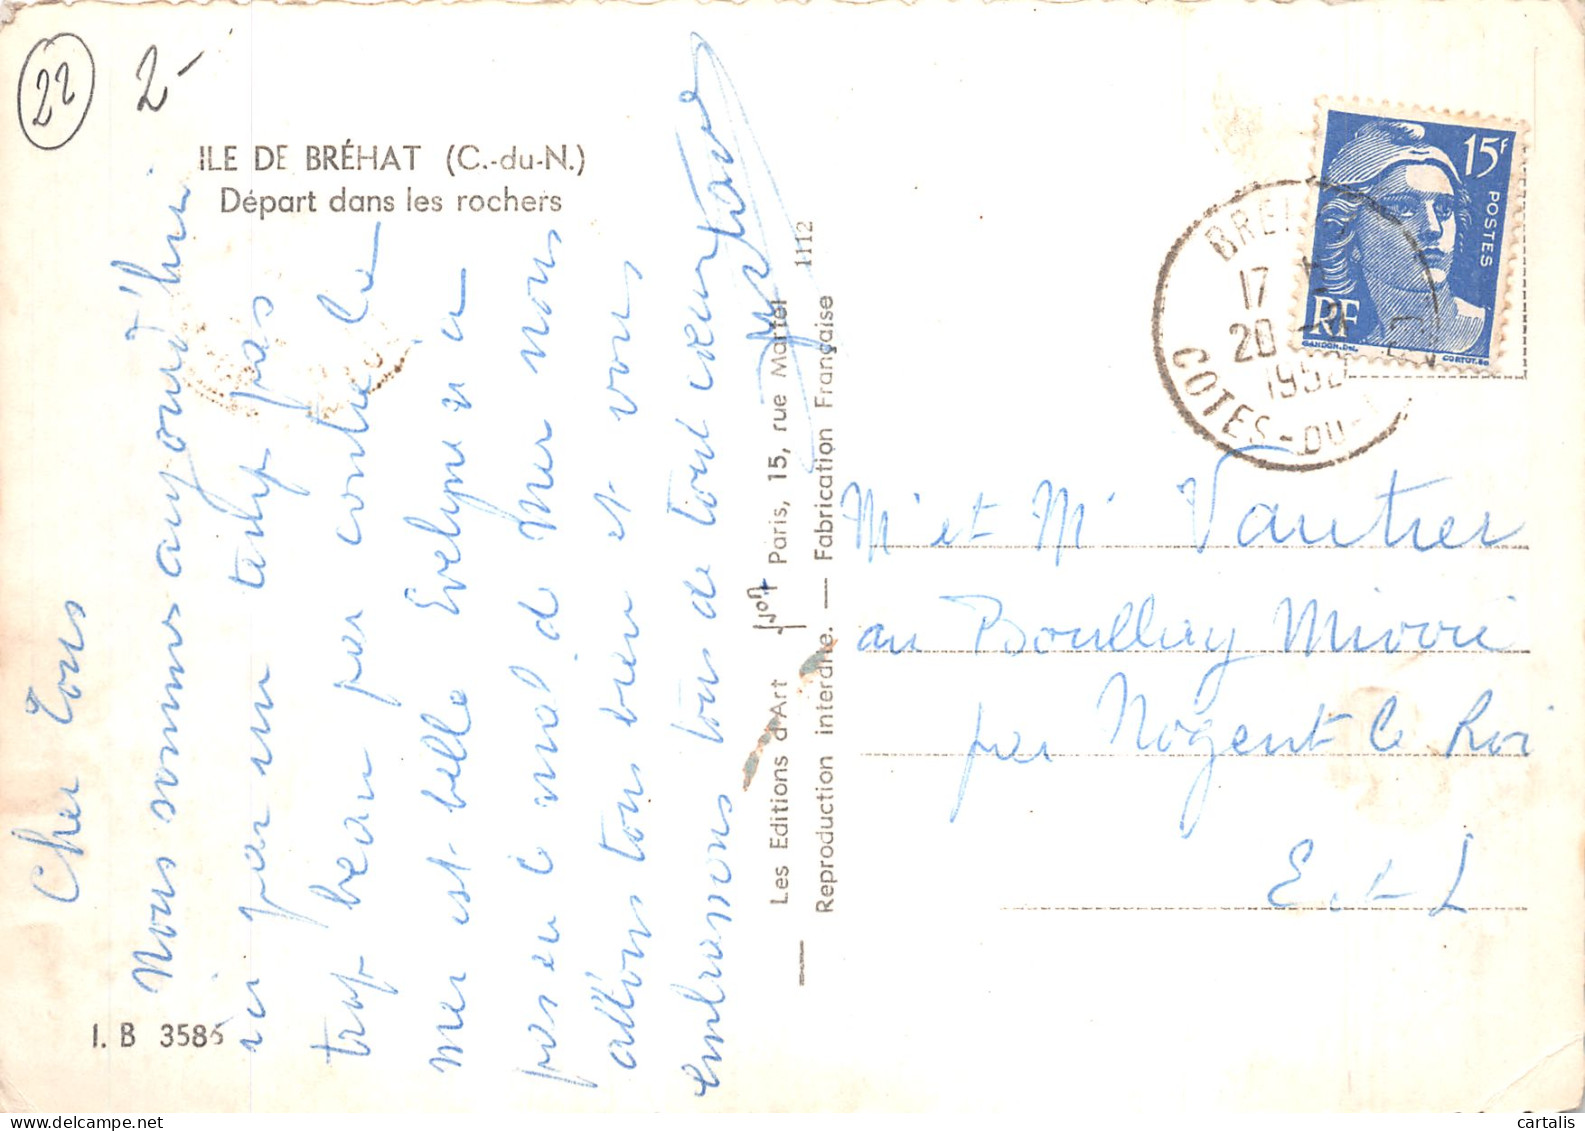 22
2-
ILE DE BRÉHAT (C.-du-N.)
Départ dans les rochers
Cher Tous
Nous sommes aujourd'hui
ici par un temps pas
trop beau par contre la
mer est belle Evelyne n'a
pas eu le mal de Mer nous
allons tous bien et vous
embrassons tous de tout cœur
I. B 3586
Les Editions d'Art Yvon Paris, 15, rue Martel 1112
Reproduction interdite. — Fabrication Française
15F
POSTES
RF
GANDON.DEL.
CORTOT.SC
17
20
1952
COTES-DU-
M et M Vautier
au Boullay Mivoie
par Nogent le Roi
E. et L
cartalis